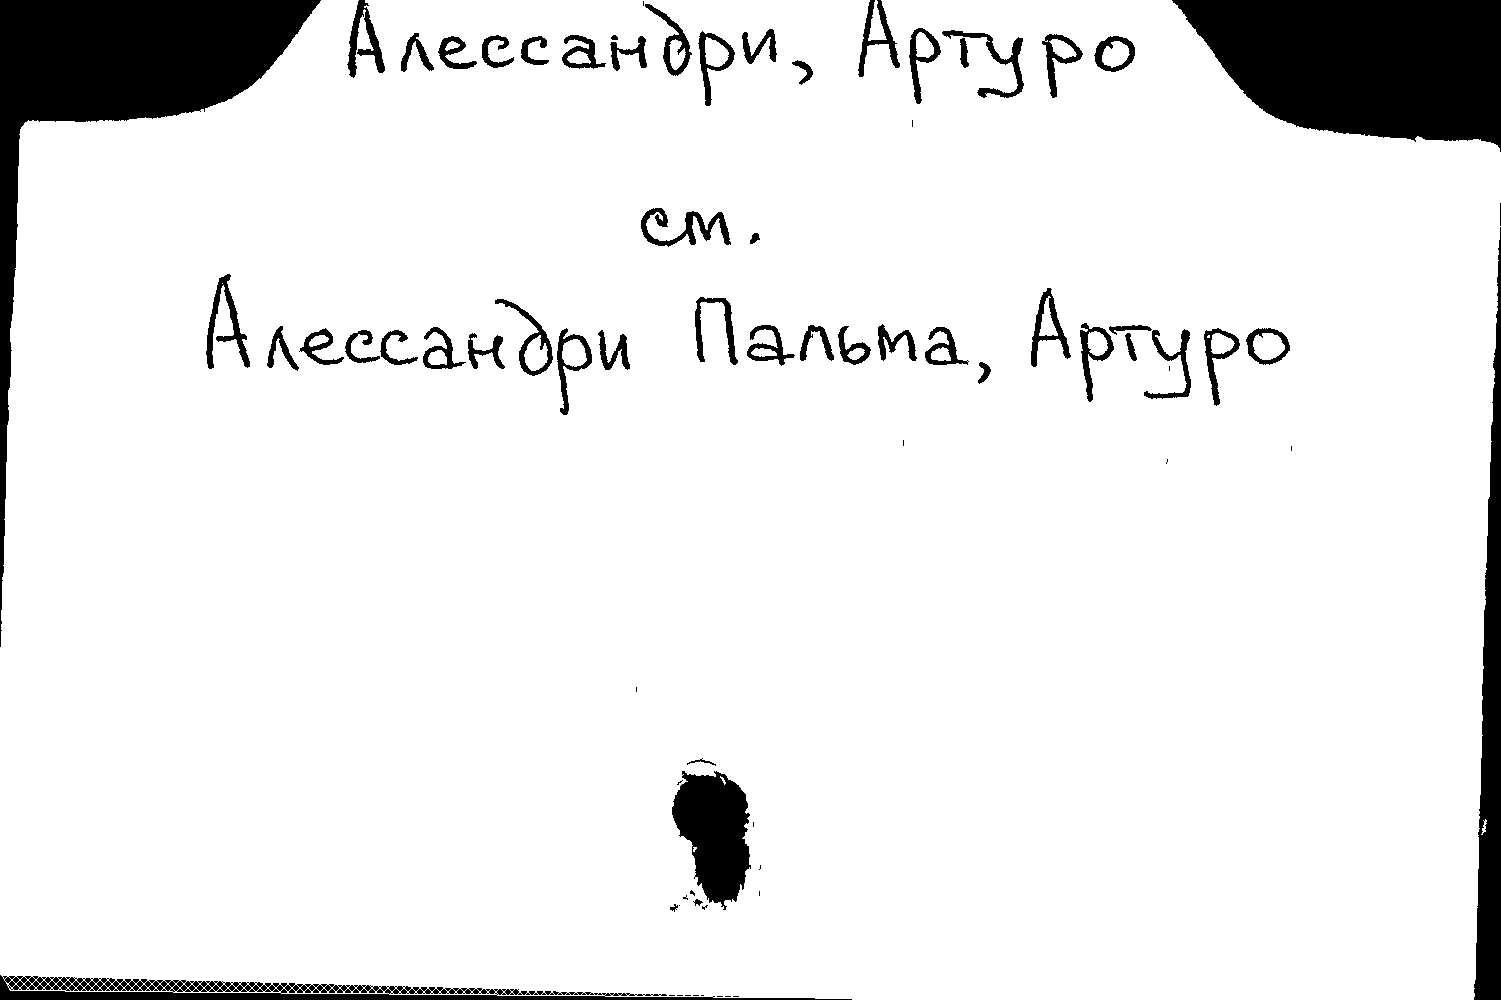 Алессандри, Артуро
см.
Алессандри Пальма, Артуро